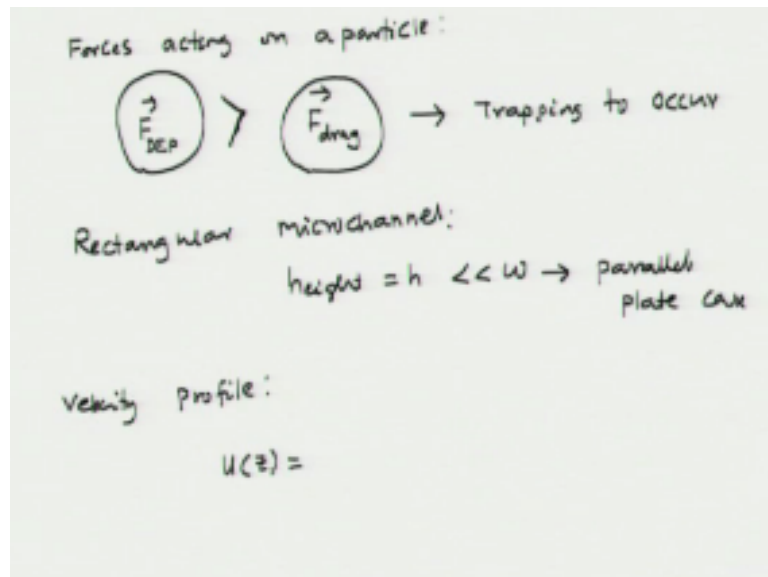 Forces acting on a particle:
F⃗DEP > F⃗drag → Trapping to occur
Rectangular microchannel:
height = h << w → parallel
plate case
Velocity profile:
u(z) =